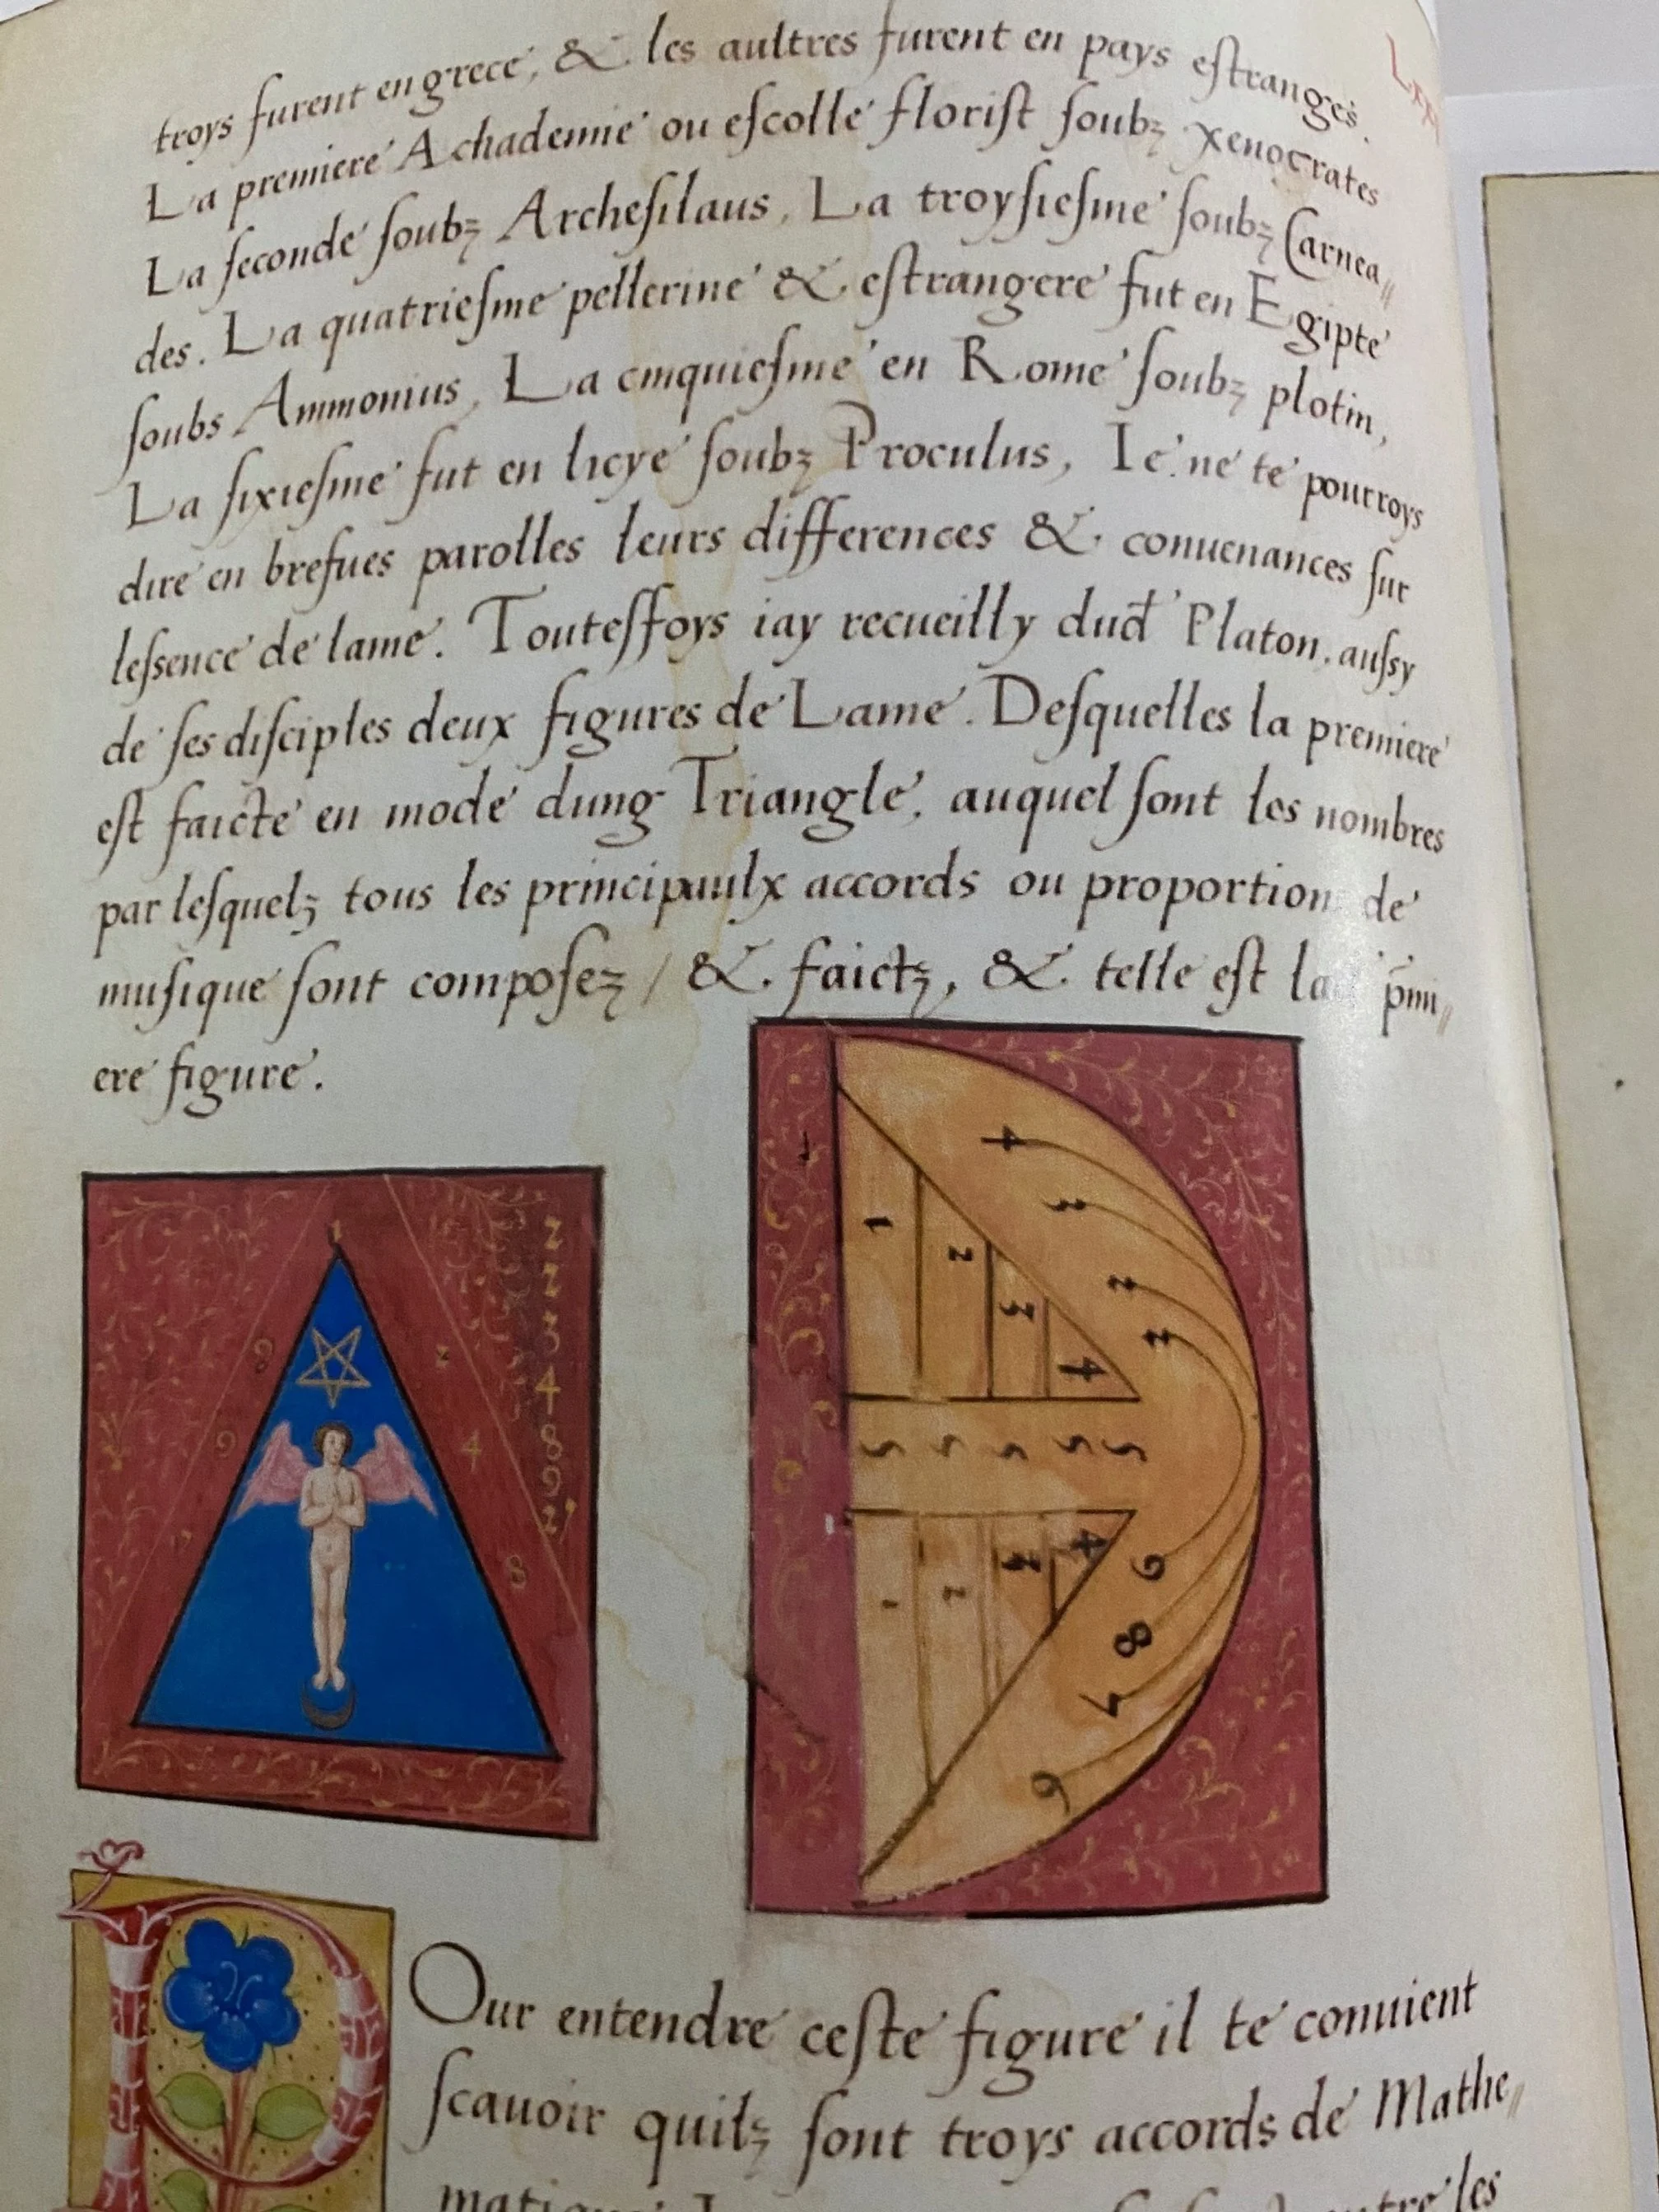 Lxx
troys furent en grece, & les aultres furent en pays estranges.
La premiere Achademie ou escolle florist soubz xenocrates
La seconde soubz Archesilaus, La troysiesme soubz Carnea〃
des. La quatriesme pellerine & estrangere fut en Egipte
soubs Ammonius, La cinquiesme en Rome soubz plotin,
La sixiesme fut en licye soubz Proculus, Ie ne te pourroys
dire en brefues parolles leurs differences & conuenances sur
lessence de lame. Toutesffoys iay recueilly dud Platon, aussy
de ses disciples deux figures de Lame. Desquelles la premiere
est faicte en mode dung Triangle, auquel sont les nombres
par lesquelz tous les principaulx accords ou proportion de
musique sont composez / & faictz, & telle est la p̄mi〃
ere figure.
1
9
9
z
4
8
z
z
3
4
8
9
z
4
3
z
z
1
z
3
4
5 5 5 5 5
1
z
4
6
8
9
Our entendre ceste figure il te conuient
scauoir quilz sont troys accords de Mathe〃